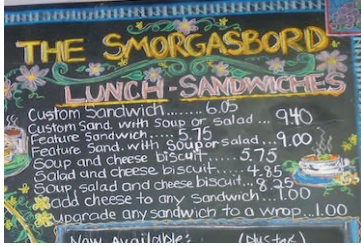 THE SMORGASBORD
LUNCH - SANDWICHES
Custom Sandwich....... 6.05
Custom Sand. with Soup or Salad ... 940
Feature Sandwich..... 5.75
Feature Sand. with Soup or salad... 9.00
Soup and cheese biscuit..... 5.75
Salad and cheese biscuit.... 4.85
Soup, salad and cheese biscuit... 8.25
add cheese to any Sandwich...1.00
upgrade any sandwich to a wrap...1.00
Now Available: